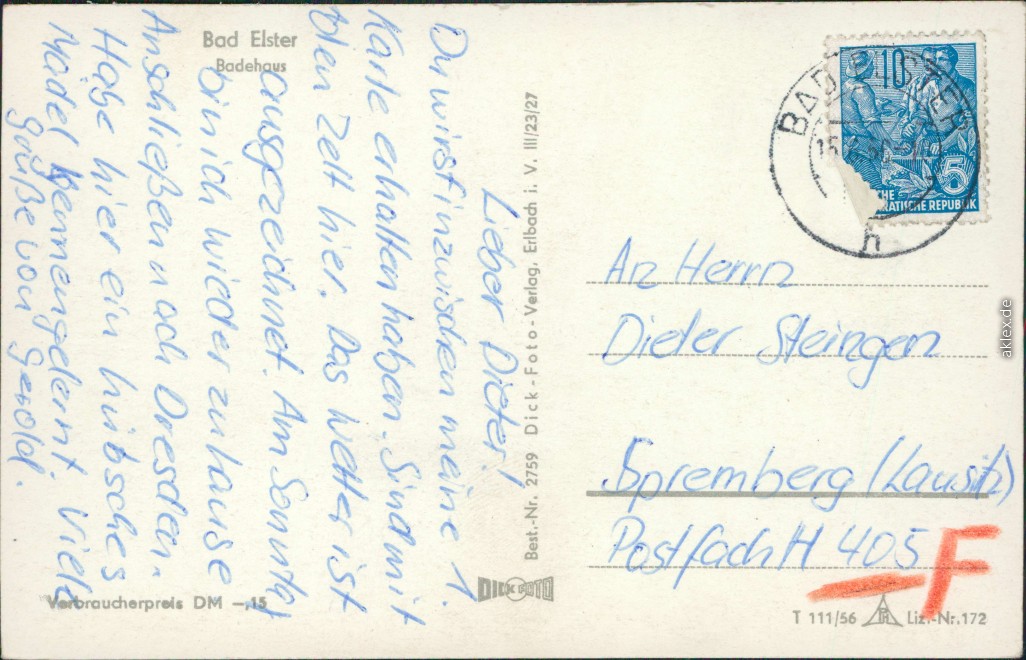 Bad Elster
Badehaus
Lieber Dieter!
Du wirst inzwischen meine 1.
Karte erhalten haben. Sind mit
den Zelt hier. Das Wetter ist
ausgezeichnet. Am Sonntag
bin ich wieder zuhause
Anschließen nach Dresden.
Habe hier ein hübsches
Mädel kennengelernt. Viele
Grüße von Gerold.
Verbraucherpreis DM –,15
Best.-Nr. 2759 Dick-Foto-Verlag, Erlbach i. V. III/23/27
DICK FOTO
BAD ELSTER
h
10
5
CHE
RATISCHE REPUBLIK
An Herrn
Dieter Steingen
Spremberg (Lausitz)
Postfach H 405
F
T 111/56 Liz.-Nr. 172
aklex.de